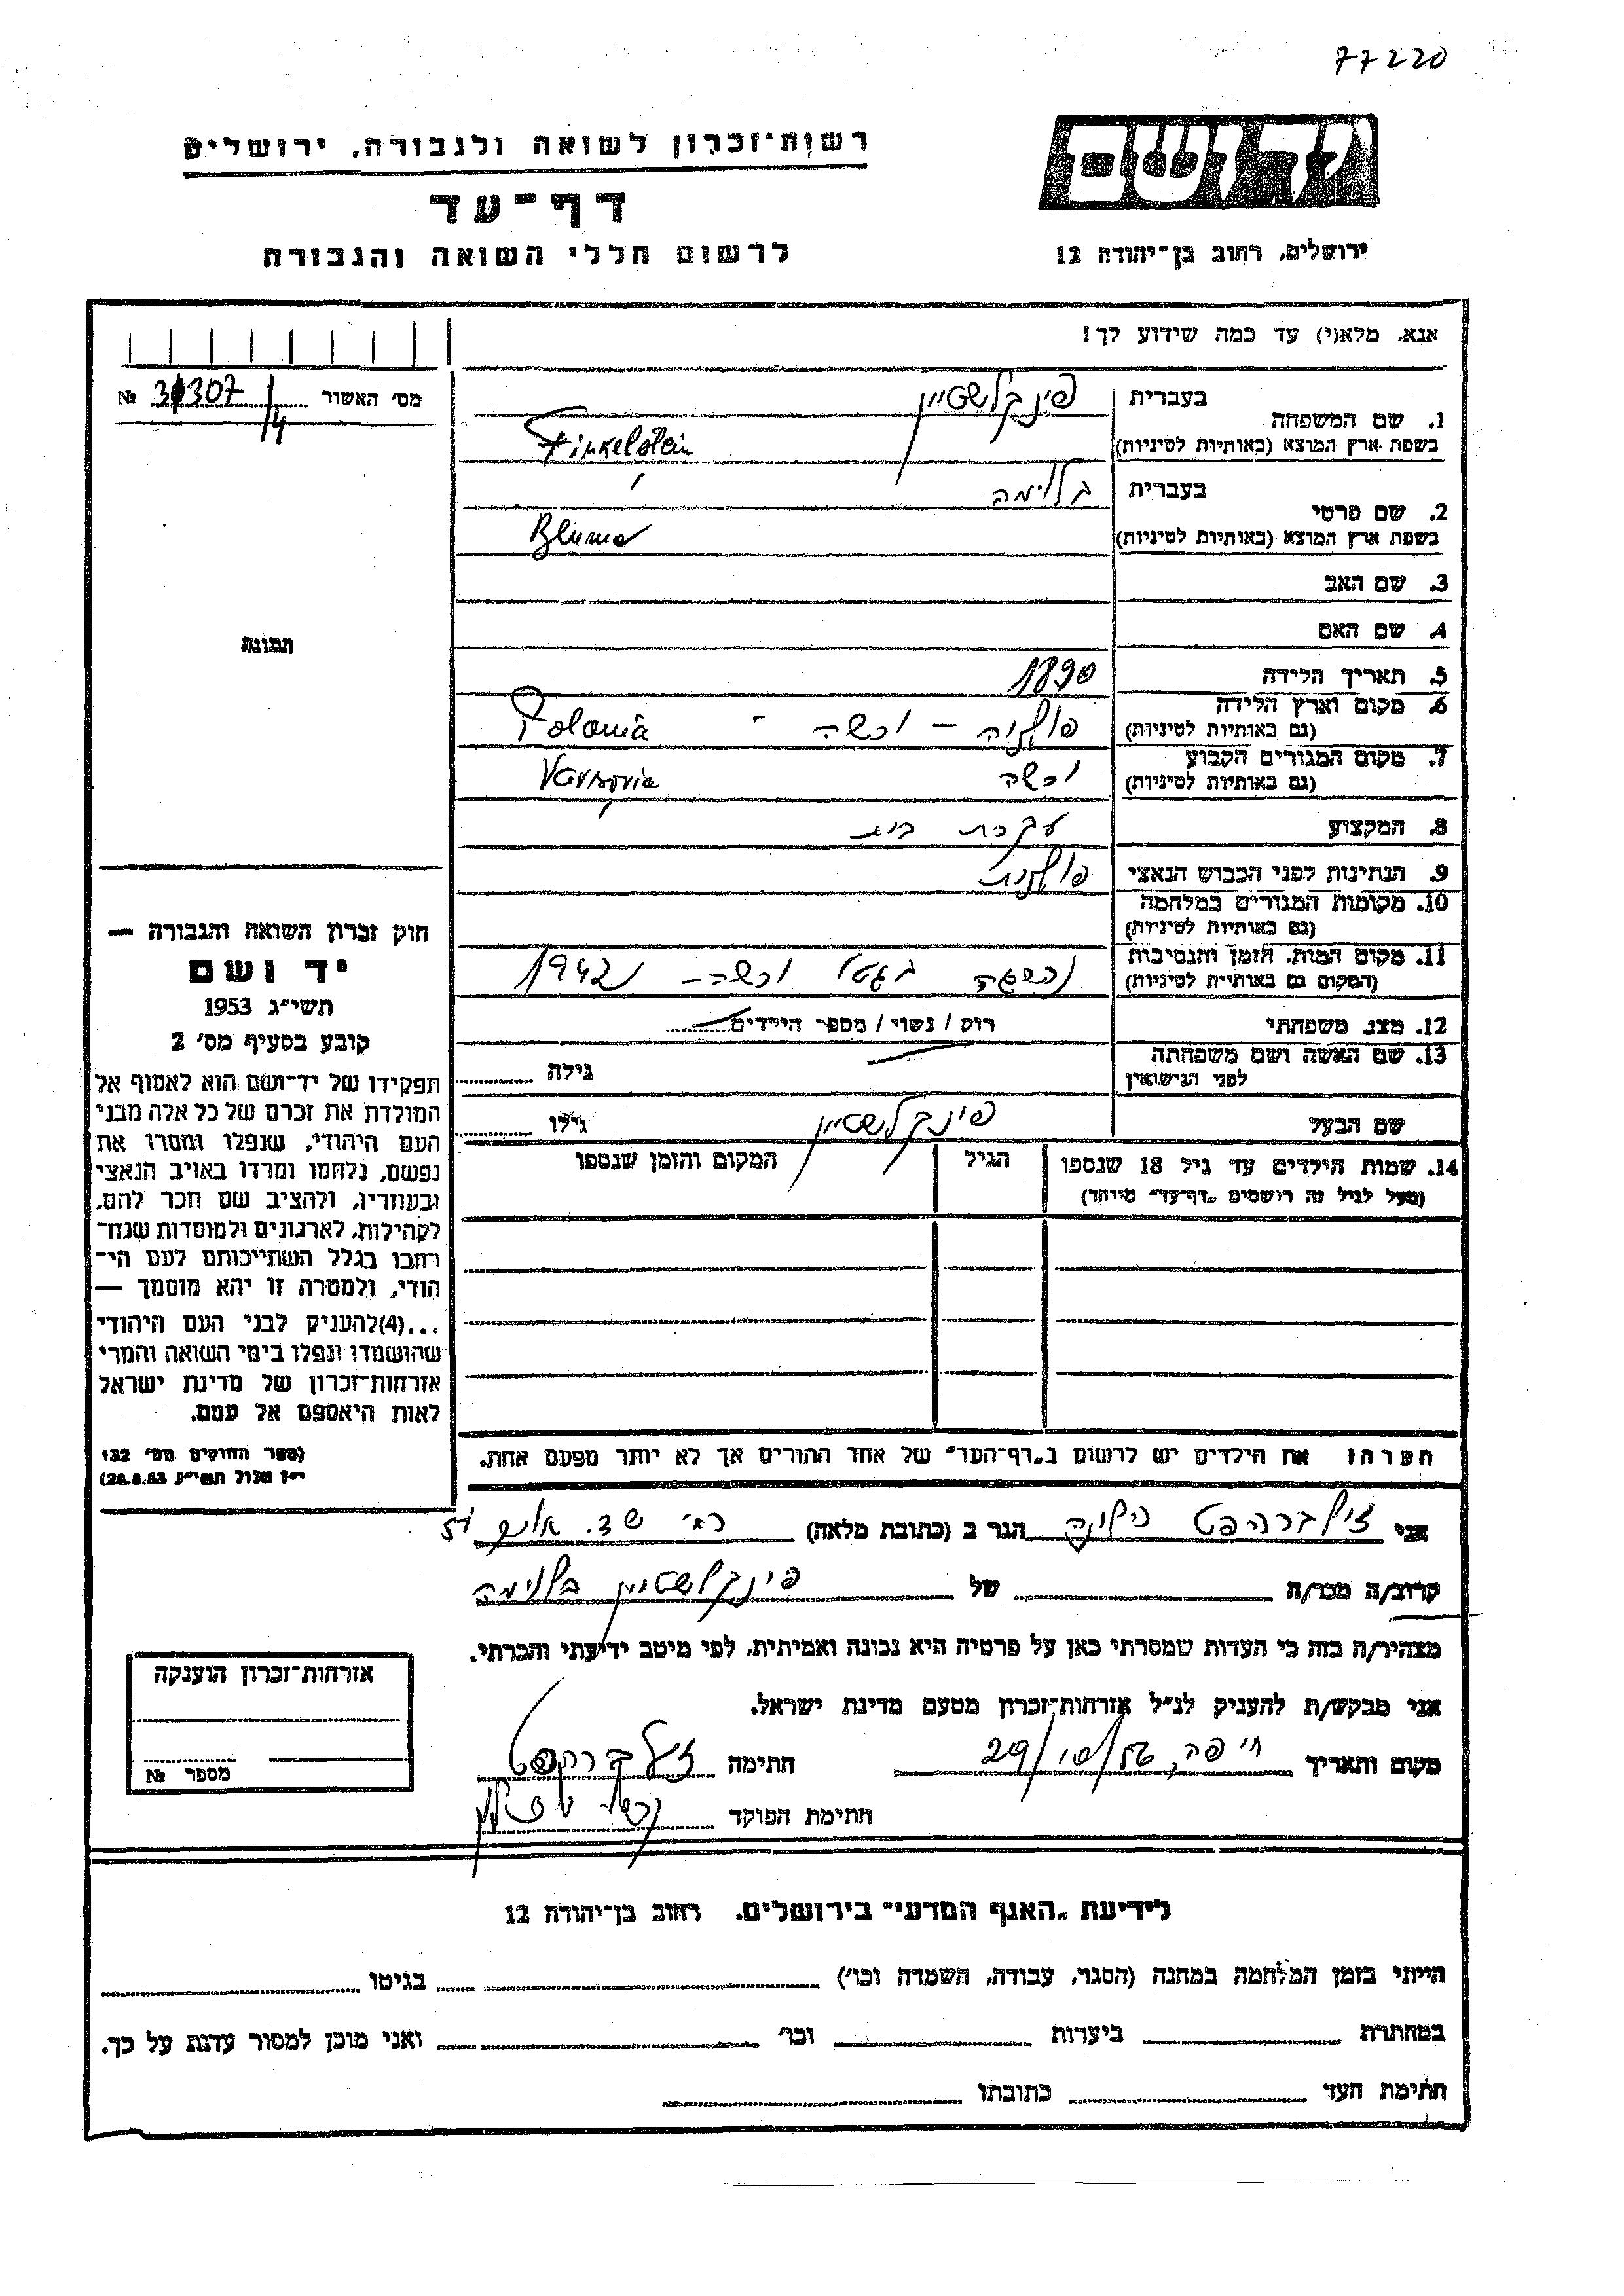 77220
רשות־זכרון לשואה ולגבורה, ירושלים
יד ושם
דף־עד
לרשום חללי השואה והגבורה
ירושלים, רחוב בן־יהודה 12
אנא, מלא(י) עד כמה שידוע לך!
מס' האשור № 31307/4
1. שם המשפחה
בעברית פינקלשטיין
בשפת ארץ המוצא (באותיות לטיניות) Finkelstein
2. שם פרטי
בעברית בלימה
בשפת ארץ המוצא (באותיות לטיניות) Bluma
3. שם האב
4. שם האם
תמונה
5. תאריך הלידה 1890
6. מקום וארץ הלידה
(גם באותיות לטיניות) פולניה – ורשה - Polonia
7. מקום המגורים הקבוע
(גם באותיות לטיניות) ורשה Varsovia
8. המקצוע עקרת בית
9. הנתינות לפני הכבוש הנאצי פולנית
10. מקומות המגורים במלחמה
(גם באותיות לטיניות)
11. מקום המות, הזמן והנסיבות
(המקום גם באותיות לטיניות) נהרגה בגטו ורשה – 1942
12. מצב משפחתי רוק / נשוי / מספר הילדים
13. שם האשה ושם משפחתה
לפני הנישואין גילה
שם הבעל פינקלשטיין גילו
14. שמות הילדים עד גיל 18 שנספו הגיל המקום והזמן שנספו
(מעל לגיל זה רושמים "דף־עד" מיוחד)
הערה: את הילדים יש לרשום ב"דף־העד" של אחד ההורים אך לא יותר מפעם אחת.
חוק זכרון השואה והגבורה —
יד ושם
תשי"ג 1953
קובע בסעיף מס' 2
תפקידו של יד־ושם הוא לאסוף אל
המולדת את זכרם של כל אלה מבני
העם היהודי, שנפלו ומסרו את
נפשם, נלחמו ומרדו באויב הנאצי
ובעוזריו, ולהציב שם וזכר להם,
לקהילות, לארגונים ולמוסדות שנח־
רבו בגלל השתייכותם לעם הי־
הודי, ולמטרה זו יהא מוסמך —
...(4) להעניק לבני העם היהודי
שהושמדו ונפלו בימי השואה והמרי
אזרחות־זכרון של מדינת ישראל
לאות היאספם אל עמם.
(ספר החוקים מס' 132
י"ז אלול תשי"ג 28.8.53)
אני זילברהפט הגר ב (כתובת מלאה)
קרוב/ה מכר/ה של פינקלשטיין בלימה
מצהיר/ה בזה כי העדות שמסרתי כאן על פרטיה היא נכונה ואמיתית, לפי מיטב ידיעתי והכרתי.
אני מבקש/ת להעניק לנ"ל אזרחות־זכרון מטעם מדינת ישראל.
מקום ותאריך חיפה, 29/10/56 חתימה זילברהפט
חתימת הפוקד
אזרחות־זכרון הוענקה
מספר №
לידיעת "האגף המדעי" בירושלים, רחוב בן־יהודה 12
הייתי בזמן המלחמה במחנה (הסגר, עבודה, השמדה וכו') בגיטו
במחתרת ביערות וכו' ואני מוכן למסור עדות על כך.
חתימת העד כתובתו